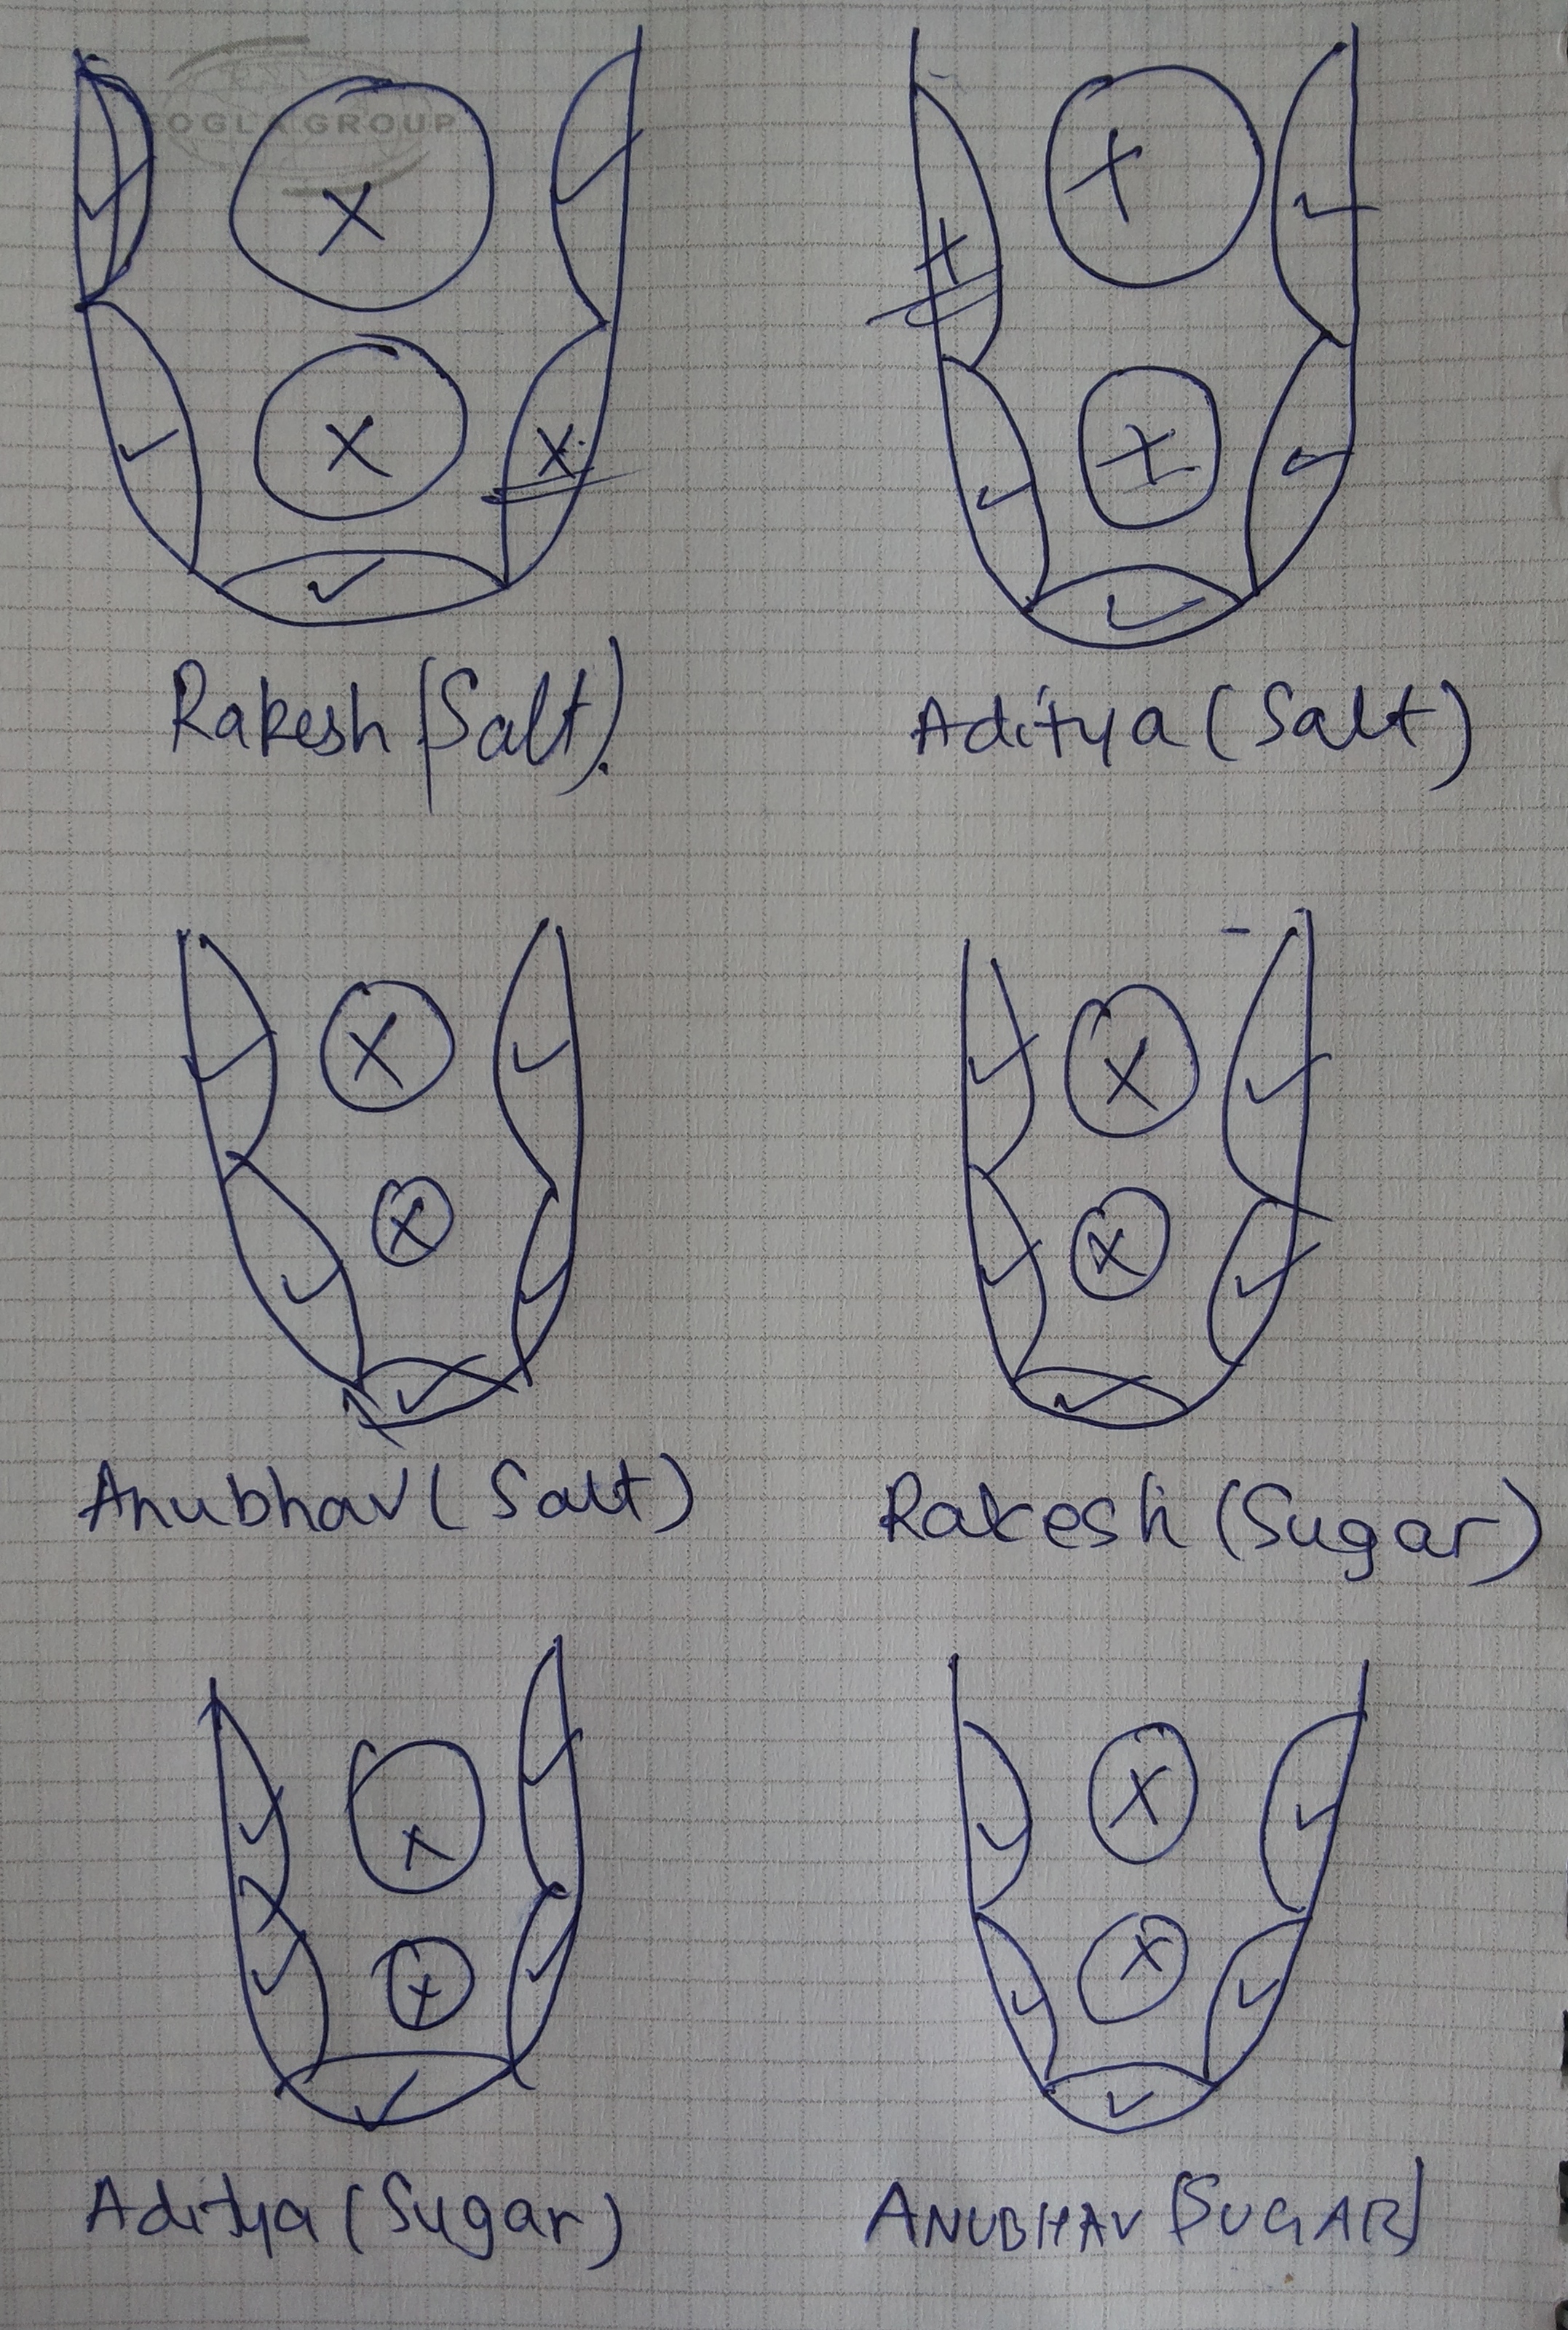 EOGLA GROUP
Rakesh (Salt).
Aditya (Salt)
Anubhav (Salt)
Rakesh (Sugar)
Aditya (Sugar)
ANUBHAV [SUGAR]